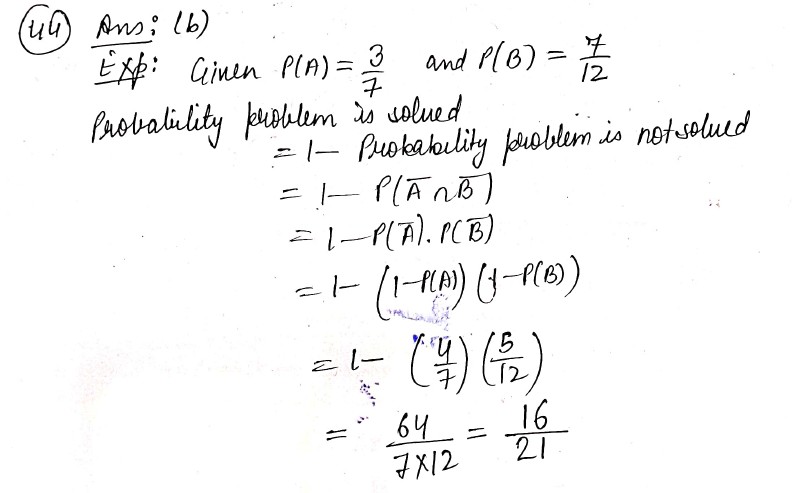 44 Ans: (b)
Exp: Given P(A) = 3/7 and P(B) = 7/12
Probability problem is solved
= 1 – Probability problem is not solved
= 1 – P(A̅ ∩ B̅)
= 1 – P(A̅). P(B̅)
= 1 – (1–P(A)) (1–P(B))
= 1 – (4/7) (5/12)
= 64/7×12 = 16/21